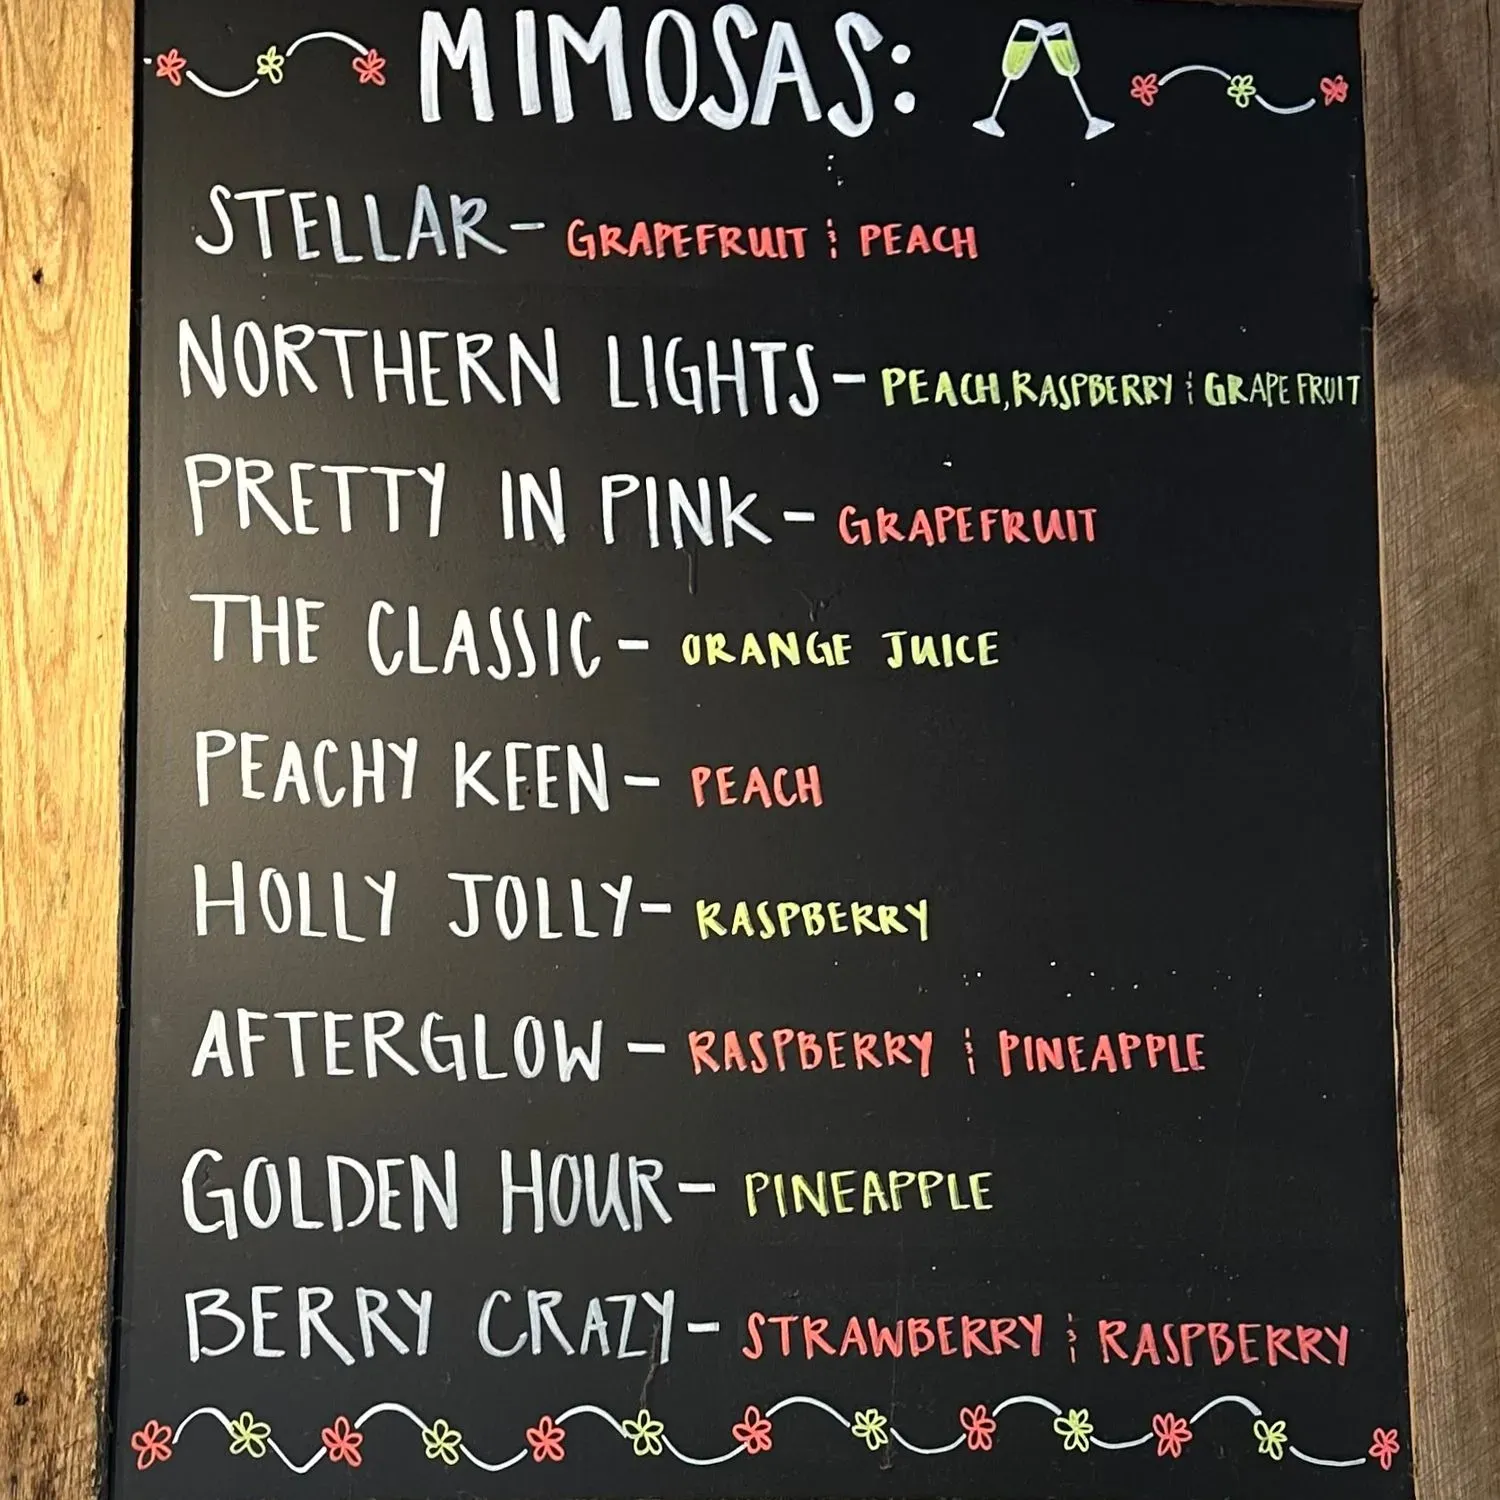 MIMOSAS:
STELLAR - GRAPEFRUIT & PEACH
NORTHERN LIGHTS - PEACH, RASPBERRY & GRAPEFRUIT
PRETTY IN PINK - GRAPEFRUIT
THE CLASSIC - ORANGE JUICE
PEACHY KEEN - PEACH
HOLLY JOLLY - RASPBERRY
AFTERGLOW - RASPBERRY & PINEAPPLE
GOLDEN HOUR - PINEAPPLE
BERRY CRAZY - STRAWBERRY & RASPBERRY